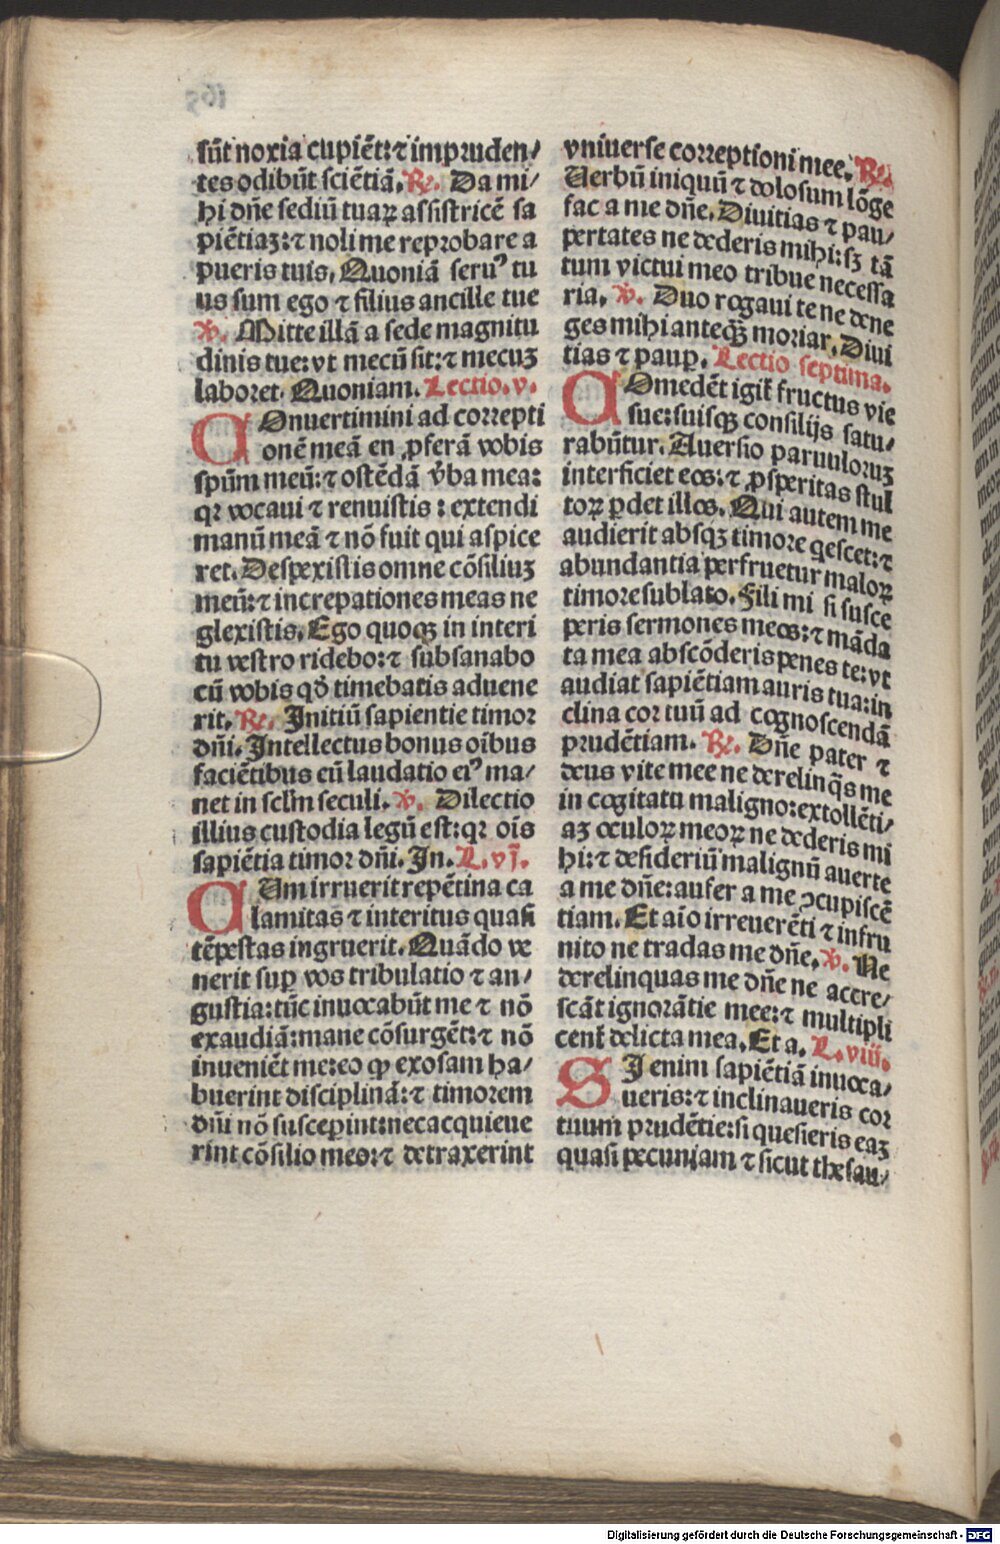 sūt noxia cupiēt: ⁊ impruden⸗
tes odibūt sciētiā. ℟. Da mi⸗
hi dn̄e sediū tuaꝝ assistricē sa
piētiaꝫ: ⁊ noli me reprobare a
pueris tuis. Quoniā seruꝰ tu
us sum ego ⁊ filius ancille tue
℣. Mitte illā a sede magnitu
dinis tue: vt mecū sit: ⁊ mecuꝫ
laboret. Quoniam. Lectio. v.
COnuertimini ad correpti
onē meā en ꝓferā vobis
spūm meū: ⁊ ostēdā v̄ba mea:
qꝛ vocaui ⁊ renuistis: extendi
manū meā ⁊ nō fuit qui aspice
ret. Despexistis omne cōsiliuꝫ
meū: ⁊ increpationes meas ne
glexistis. Ego quoqꝫ in interi
tu vestro ridebo: ⁊ subsanabo
cū vobis qd̄ timebatis aduene
rit. ℟. Initiū sapientie timor
dn̄i. Intellectus bonus oībus
faciētibus eū laudatio eiꝰ ma⸗
net in scl̄m seculi. ℣. Dilectio
illius custodia legū est: qꝛ oīs
sapiētia timor dn̄i. In. L. vj.
CUm irruerit repētina ca
lamitas ⁊ interitus quasi
tēpestas ingruerit. Quādo ve
nerit suꝑ vos tribulatio ⁊ an⸗
gustia: tūc inuocabūt me ⁊ nō
exaudiā: mane cōsurgēt: ⁊ nō
inueniēt me: eo ꝙ exosam ha⸗
buerint disciplinā: ⁊ timorem
dn̄i nō susceperint: nec acquieue
rint cōsilio meo: ⁊ detraxerint
vniuerse correptioni mee. ℟.
Uerbū iniquū ⁊ dolosum lōge
fac a me dn̄e. Diuitias ⁊ pau⸗
pertates ne dederis mihi: sꝫ tā
tum victui meo tribue necessa
ria. ℣. Duo rogaui te ne dene
ges mihi anteqꝫ̄ moriar. Diui
tias ⁊ pauꝑ. Lectio septima.
COmedēt igit̄ fructus vie
sue: suisqꝫ consilijs satu⸗
rabūtur. Auersio paruuloruꝫ
interficiet eos: ⁊ ꝓsperitas stul
toꝝ ꝑdet illos. Qui autem me
audierit absqꝫ timore qescet: ⁊
abundantia perfruetur maloꝝ
timore sublato. Fili mi si susce
peris sermones meos: ⁊ māda
ta mea abscōderis penes te: vt
audiat sapiētiam auris tua: in
clina cor tuū ad cognoscendā
prudētiam. ℟. Dn̄e pater ⁊
deus vite mee ne derelinq̄s me
in cogitatu maligno: extollēti⸗
aꝫ oculoꝝ meoꝝ ne dederis mi
hi: ⁊ desideriū malignū auerte
a me dn̄e: aufer a me ꝯcupiscē
tiam. Et aīo irreuerēti ⁊ infru
nito ne tradas me dn̄e. ℣. Ne
derelinquas me dn̄e ne accre⸗
scāt ignorātie mee: ⁊ multipli
cent̄ delicta mea. Et a. L. viij.
SI enim sapiētiā inuoca⸗
ueris: ⁊ inclinaueris cor
tuum prudētie: si quesieris eaꝫ
quasi pecuniam ⁊ sicut thesau⸗
Digitalisierung gefördert durch die Deutsche Forschungsgemeinschaft - DFG